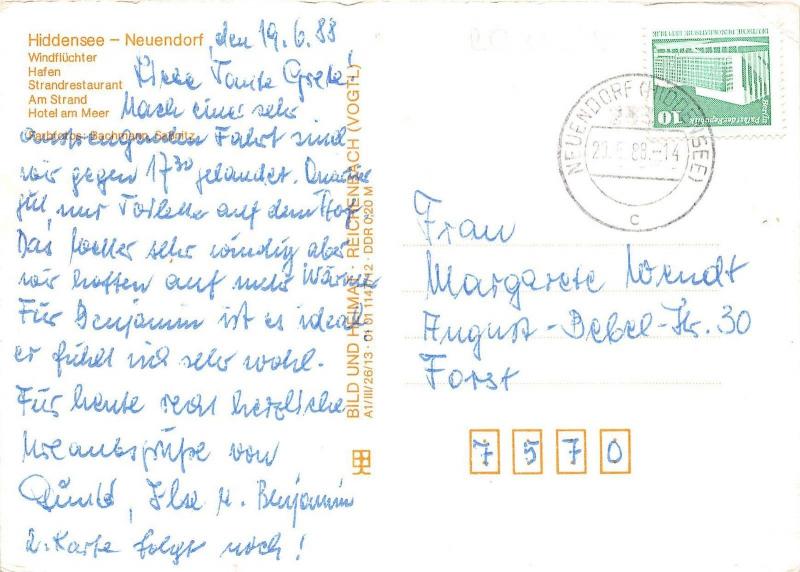 Hiddensee – Neuendorf
Windflüchter
Hafen
Strandrestaurant
Am Strand
Hotel am Meer
Farbfotos: Bachmann, Saßnitz
den 19.6.88
Liebe Tante Grete!
Nach einer sehr
anstrengenden Fahrt sind
wir gegen 17³⁰ gelandet. Quartier
gut, nur Toilette auf dem Hof.
Das Wetter sehr windig aber
wir hoffen auf mehr Wärme
Für Benjamin ist es ideal
er fühlt sich sehr wohl.
Für heute recht herzliche
Urlaubsgrüße von
Ilse u. Benjamin
2. Karte folgt noch!
BILD UND HEIMAT · REICHENBACH (VOGTL)
A1/III/26/13 · 01 01 1147/12 · DDR 0,20 M
DEUTSCHE DEMOKRATISCHE REPUBLIK
Berlin
Palast der Republik
10
NEUENDORF (HIDDENSEE)
88.-14
c
Frau
Margarete Wendt
August-Bebel-Str. 30
Forst
7570